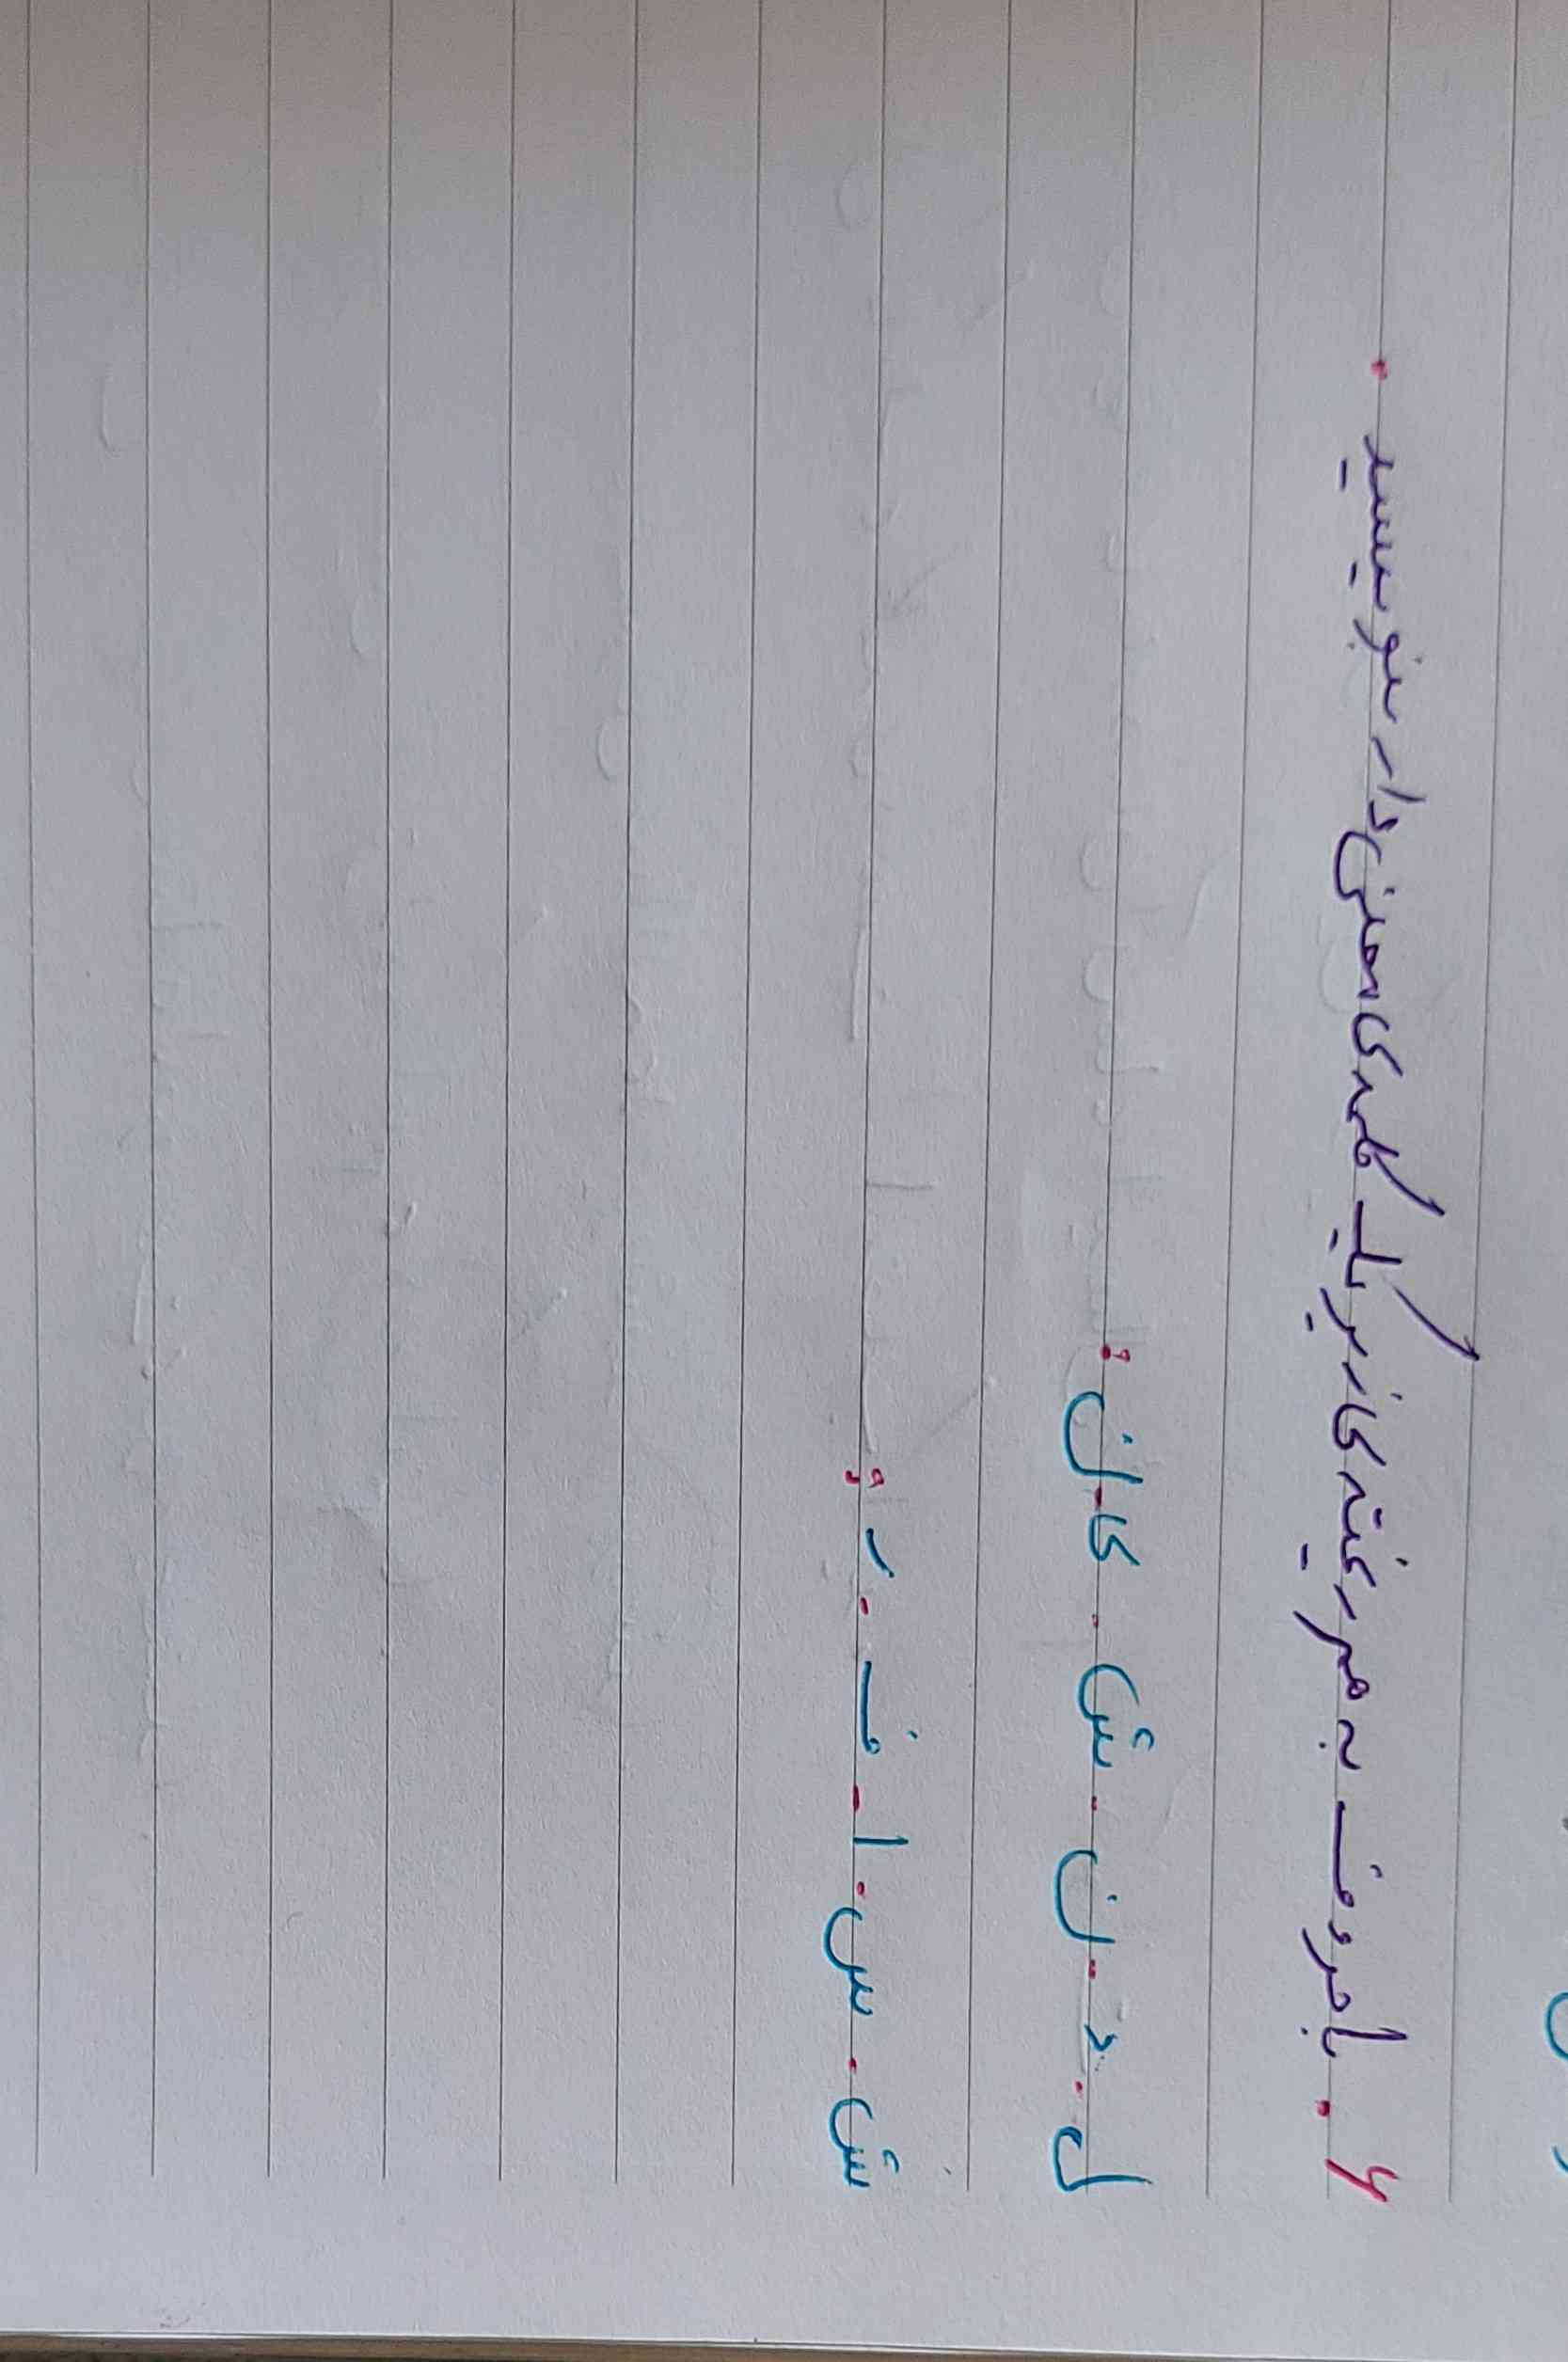 ۶. با حروف به هم ریخته ی زیر یک کلمه ی معنی دار بنویسید.
ل . د - ن - ش - ی - ن :
ش - س - ا - ف - ر :